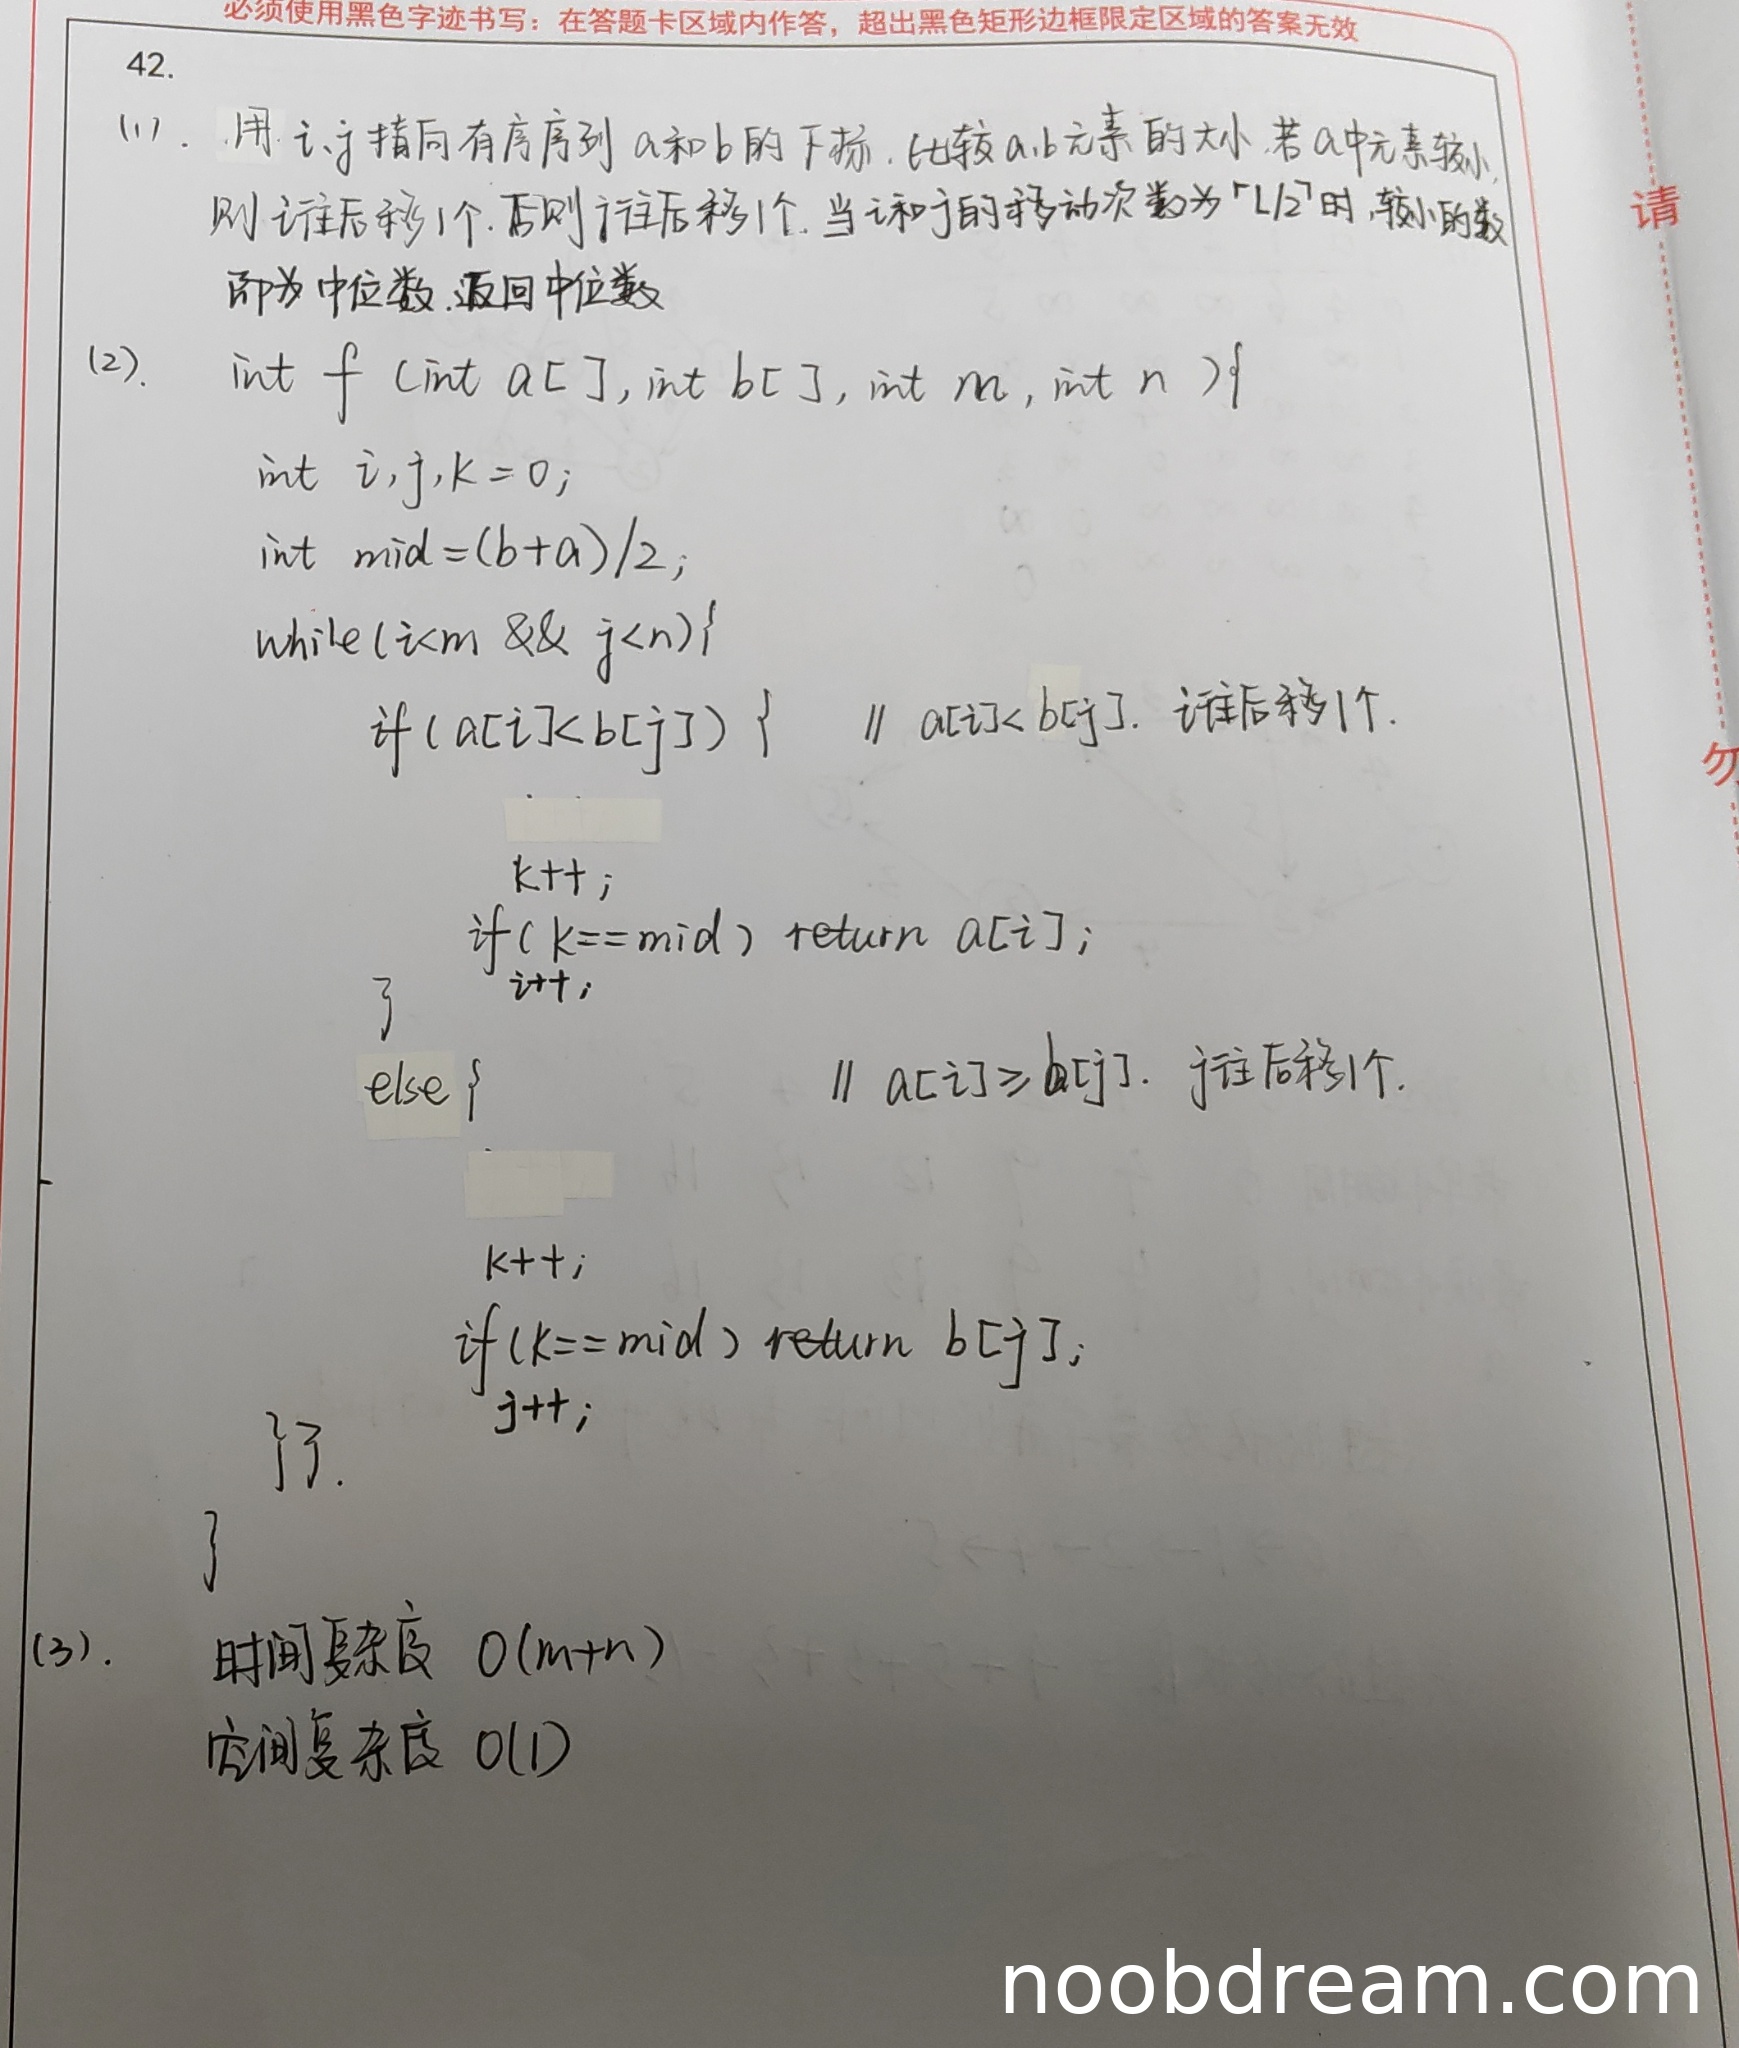 必须使用黑色字迹书写：在答题卡区域内作答，超出黑色矩形边框限定区域的答案无效
42.
(1). 用i、j指向有序序列a和b的下标.比较a、b元素的大小.若a中元素较小,
则i往后移1个.否则j往后移1个.当i和j的移动次数为「L/2˥时,较小的数
即为中位数.返回中位数
(2). int f (int a[], int b[], int m, int n ){
int i,j,k=0;
int mid=(b+a)/2;
while(i<m && j<n){
if(a[i]<b[j]) { // a[i]<b[j]. i往后移1个.
k++;
if(k==mid) return a[i];
i++;
}
else{ // a[i]≥b[j]. j往后移1个.
k++;
if(k==mid) return b[j];
j++;
}}.
}
(3). 时间复杂度 O(m+n)
空间复杂度 O(1)
请
勿
noobdream.com